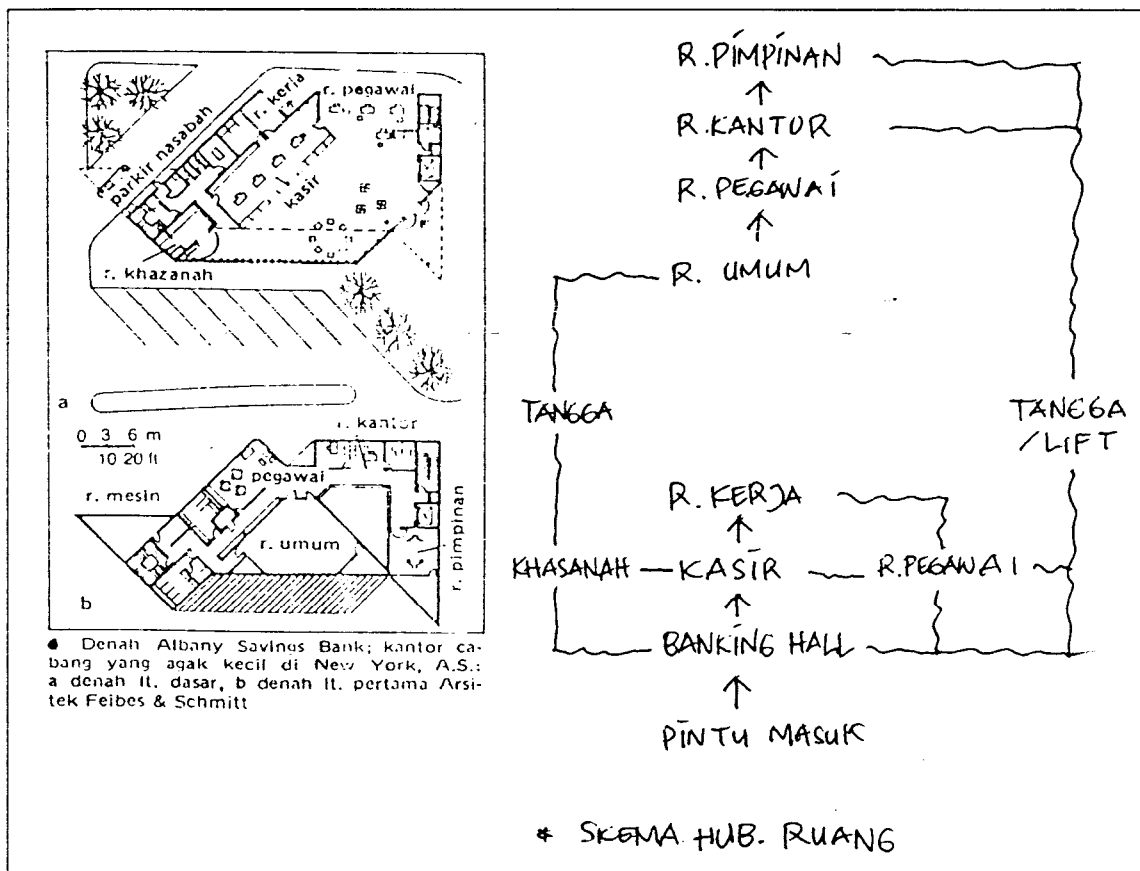 parkir nasabah
r. kerja
r. pegawai
kasir
r. khazanah
a
0 3 6 m
10 20 ft
r. kantor
pegawai
r. mesin
r. umum
r. pimpinan
b
Denah Albany Savings Bank; kantor ca-
bang yang agak kecil di New York, A.S.:
a denah lt. dasar, b denah lt. pertama Arsi-
tek Feibes & Schmitt
R. PIMPINAN
R. KANTOR
R. PEGAWAI
R. UMUM
TANGGA
TANGGA
/LIFT
R. KERJA
KHASANAH — KASIR
R. PEGAWAI
BANKING HALL
PINTU MASUK
* SKEMA HUB. RUANG